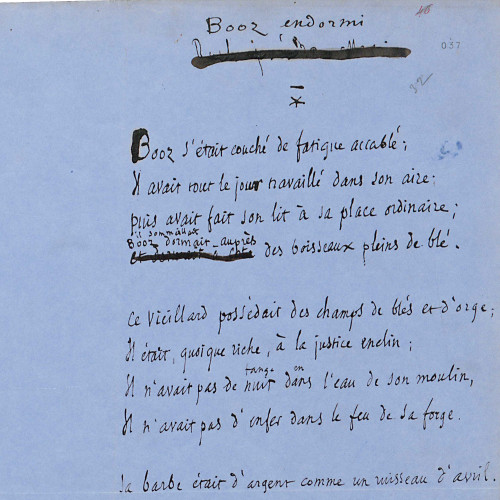 Booz endormi
037
32
Booz s'était couché de fatigue accablé;
Il avait tout le jour travaillé dans son aire;
puis avait fait son lit à sa place ordinaire;
il sommeillait
Booz dormait auprès
des boisseaux pleins de blé.
Ce vieillard possédait des champs de blés et d'orge;
Il était, quoique riche, à la justice enclin;
fange en
Il n'avait pas de nuit dans l'eau de son moulin,
Il n'avait pas d'enfer dans le feu de sa forge.
Sa barbe était d'argent comme un ruisseau d'avril.